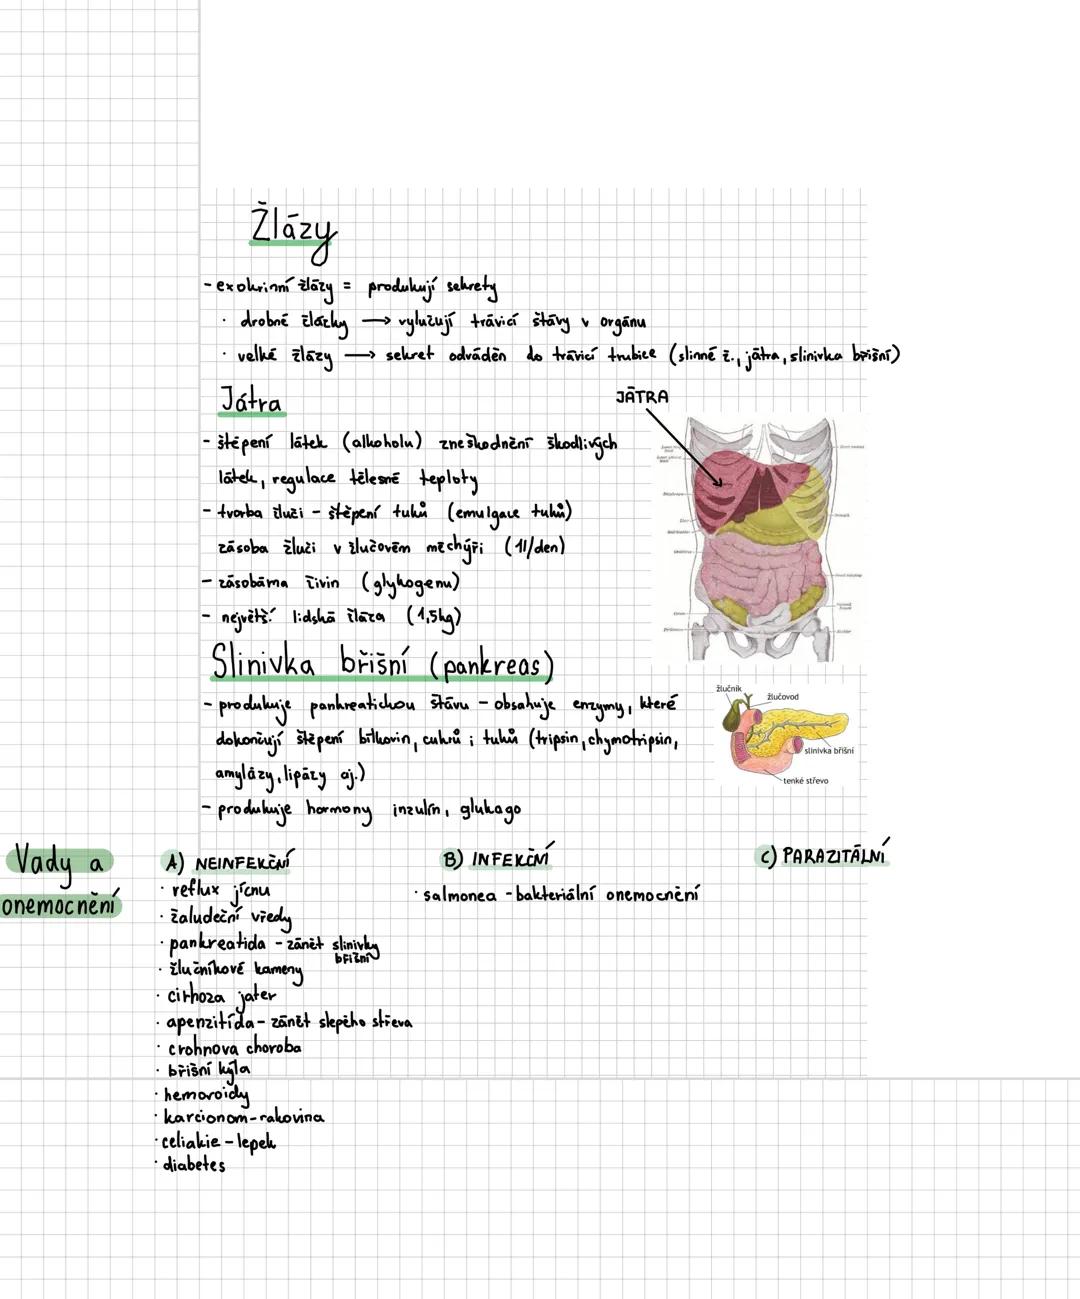 Žlázy
- exokrinní žlázy = produkují sekrety
· drobné žlázky → vylučují trávicí šťávy v orgánu
· velké žlázy → sekret odváděn do trávicí trubice (slinné ž., játra, slinivka břišní)
Játra
- štěpení látek (alkoholu) zneškodnění škodlivých
látek, regulace tělesné teploty
- tvorba žluči - štěpení tuků (emulgace tuků)
zásoba žluči v žlučovém měchýři (1l/den)
- zásobárna živin (glykogenu)
- největší lidská žláza (1,5kg)
JÁTRA
Slinivka břišní (pankreas)
- produkuje pankreatickou šťávu - obsahuje enzymy, které
dokončují štěpení bílkovin, cukrů i tuků (tripsin, chymotripsin,
amylázy, lipázy aj.)
- produkuje hormony inzulín, glukago
žlučník
žlučovod
slinivka břišní
tenké střevo
Vady a
onemocnění
A) NEINFEKČNÍ
· reflux jícnu
· žaludeční vředy
· pankreatida - zánět slinivky
břišní
· žlučníkové kameny
· cirhoza jater
· apenzitída - zánět slepého střeva
· crohnova choroba
· břišní kýla
· hemoroidy
· karcionom - rakovina
· celiakie - lepek
· diabetes
B) INFEKČNÍ
· salmonea - bakteriální onemocnění
C) PARAZITÁLNÍ